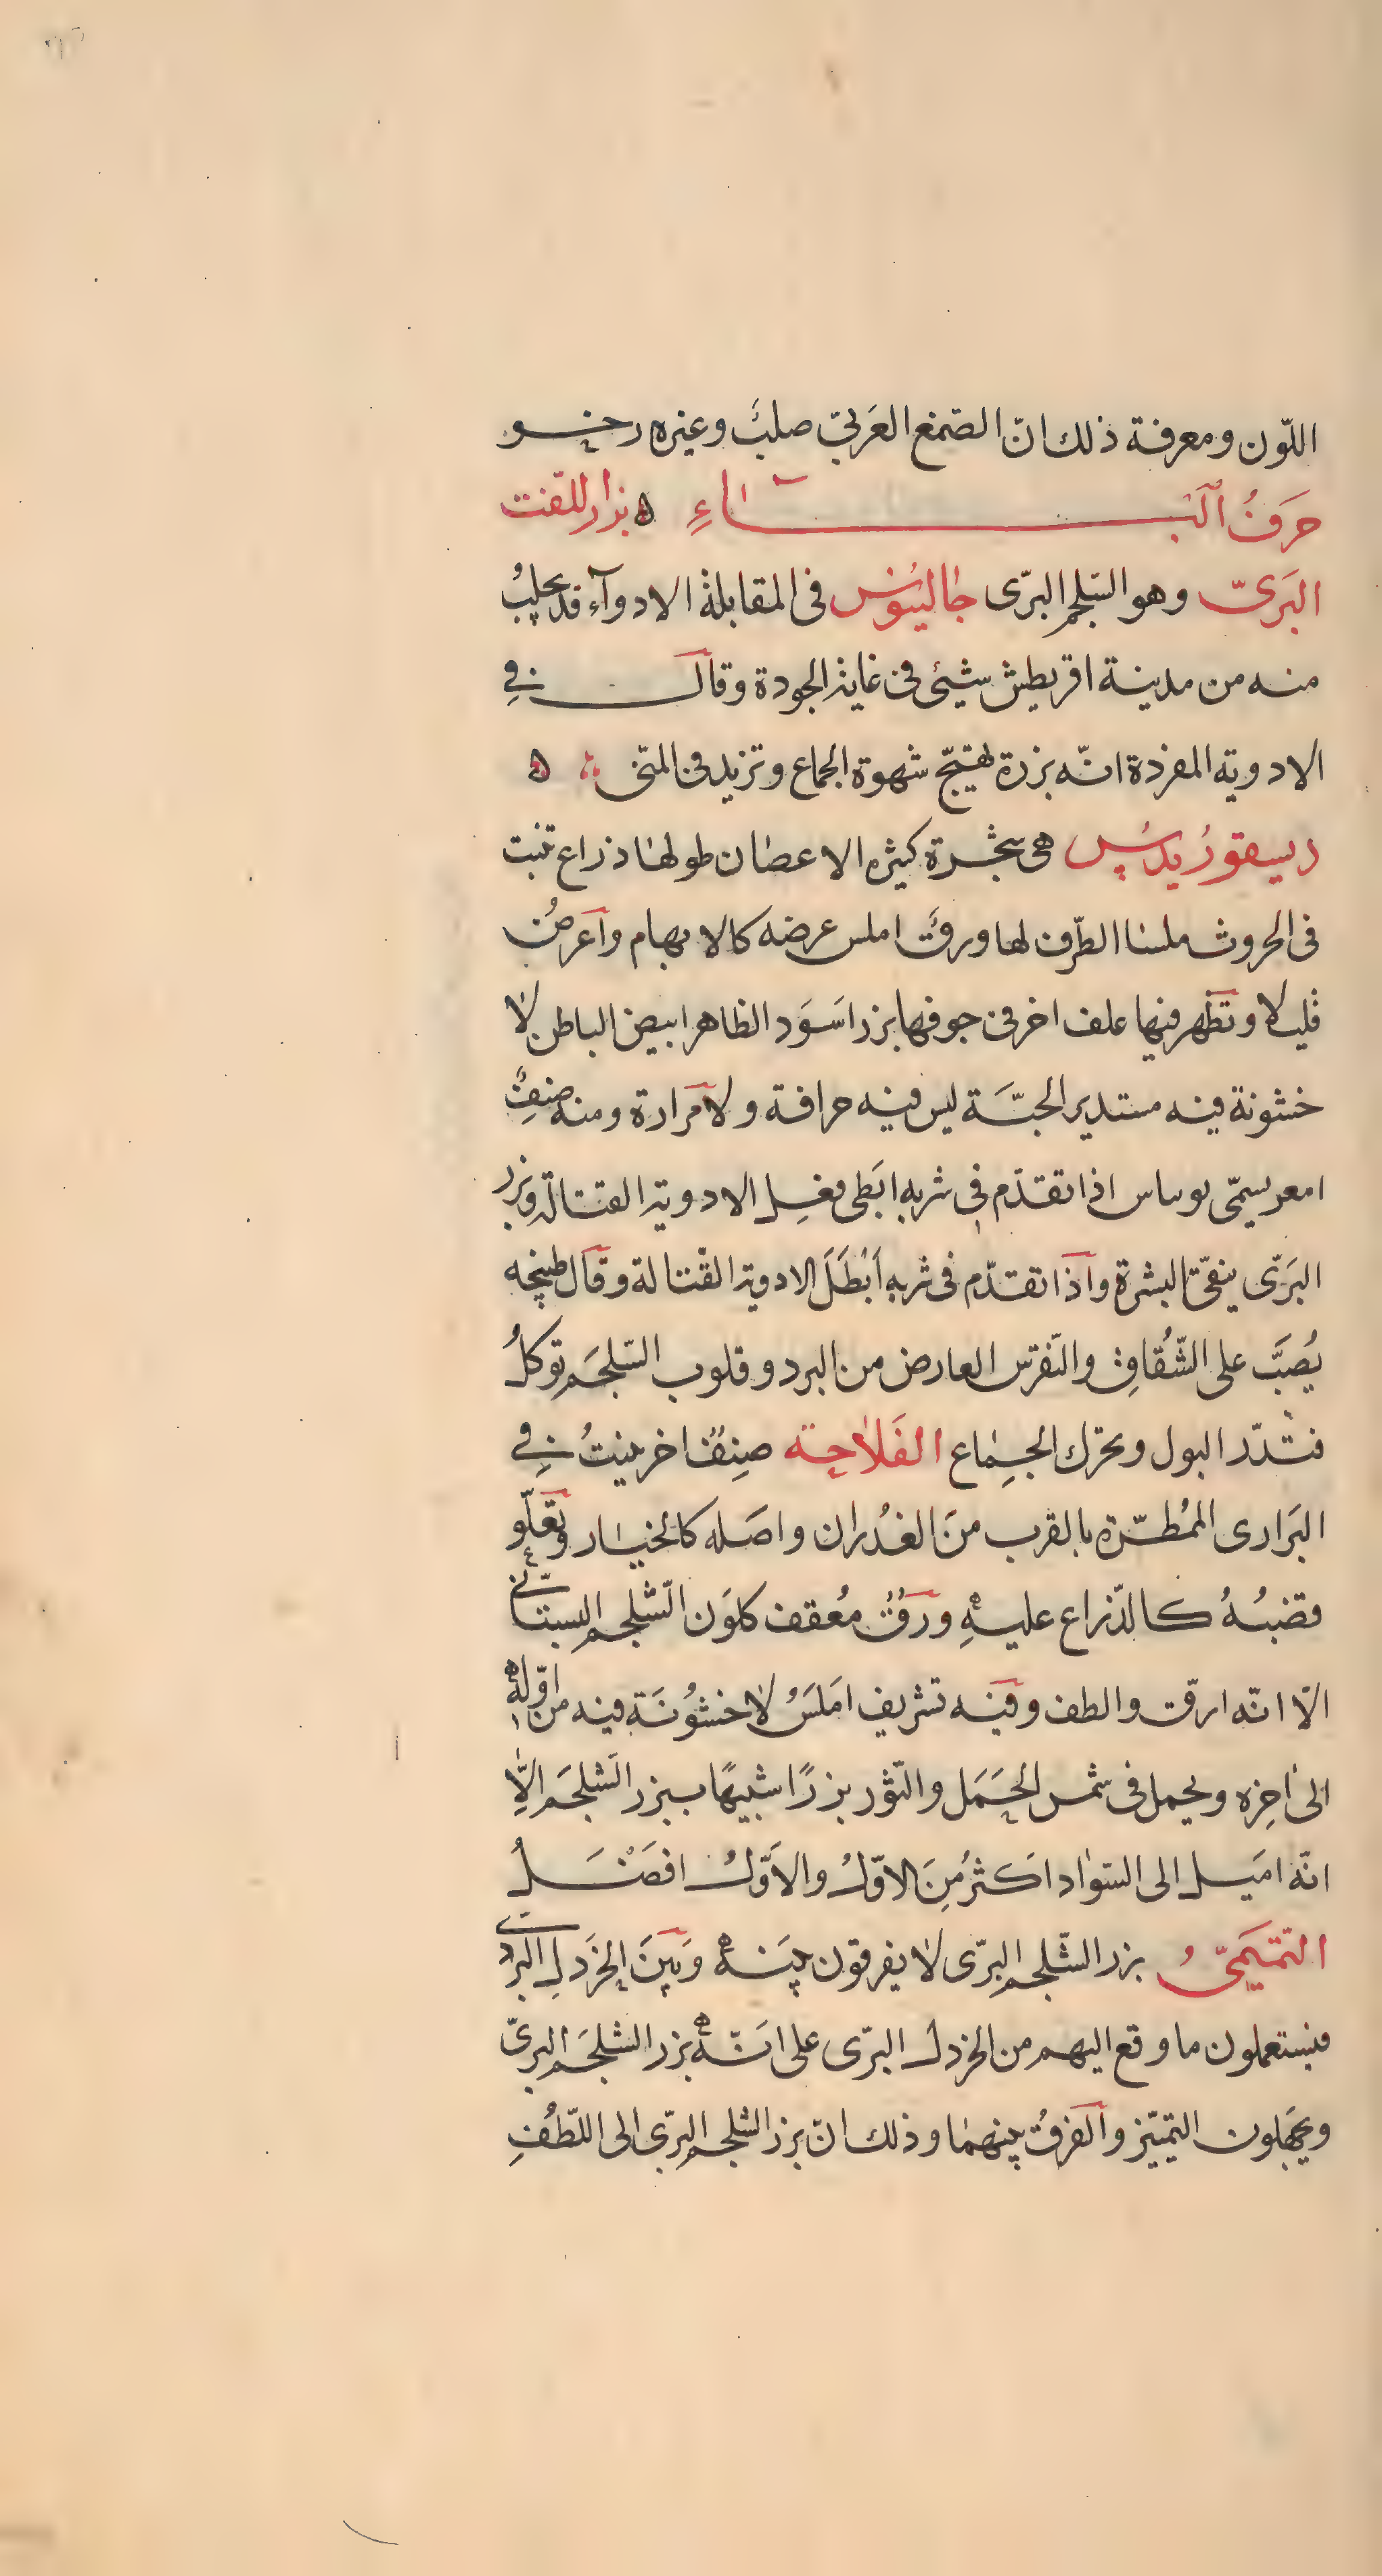 اللّون ومعرفة ذلك انّ الصّمغ العَربىّ صلبٌ وغيره رخو
حَرفُ البَاءِ ه بزر اللّفت
البَرىّ وهو السّلجم البرّى جالينوس فى المقابلة الادوآء قد يجلبُ
منه من مدينة اقريطش شيئ فى غاية الجودة وقال فى
الادوية المفردة انّه بزرة تهيّج شهوة الجماع وتزيد فى المنى ه
ديسقوريدس هى شجرة كثيره الاغصان طولها ذراع تنبت
فى الحروث ملسا الطّرف لها ورقٌ املس عرضه كالابهام وآعرضُ
قليلا وتظهر فيها غلف اخر فى جوفها بزر اسَوَد الظاهر ابيض الباطن لا
خشونة فيه مستدير الحبّة ليس فيه حرافة ولا مرارة ومنه صنفٌ
امعر يسمّى بوساس اذا تقدّم فى شربه ابَطى فعل الادوية القتالة وبزر
البَرّى ينقّى البشرة وآذا تقدّم فى شربه اَبْطَلَ الادوية القتالة وقال طبيخه
يُصبَّ على الشّقُاقِ والنّقرس العارض من البرد وقلوب السّلجَم توكلُ
فتدّر البول ويحرّك الجِماع الفَلاحة صنِفٌ اخر ينبتُ فى
البَرارى الممُطرّة بالقرب منَ الغُدران واصَله كالخيار وتَعلّو
قضبُهُ كالذّراع عليهِ ورقٌ مُعقف كلوَن الشّلجم البستانّى
الّا انّه ارقّ والطف وفيه تشريف امَلسَُ لا خشوُنَة فيه من اوّلهِ
الى اخِره ويحمل فى شمس الحَمَل والثّور بزرًا شبيهًا ببزر الشلجَم الّاِ
انّه اميَل الى السّواد اَكثرُ مِنَ الاوّل والاَوّل افضَلُ
التمّيَمىُّ بزر الشّلجم البرّى لا يفرقون بيَنه وَبَينَ الخَردلِ البرّى
فيستعملون ما وقع اليهم من الخردل البرّى على انَّه بزر الشلجَم البرىّ
ويجَهلون التمّيّز والَفرقُ بينهما وذلك انّ بزر الشلجم البرّى الى اللّطُفِ